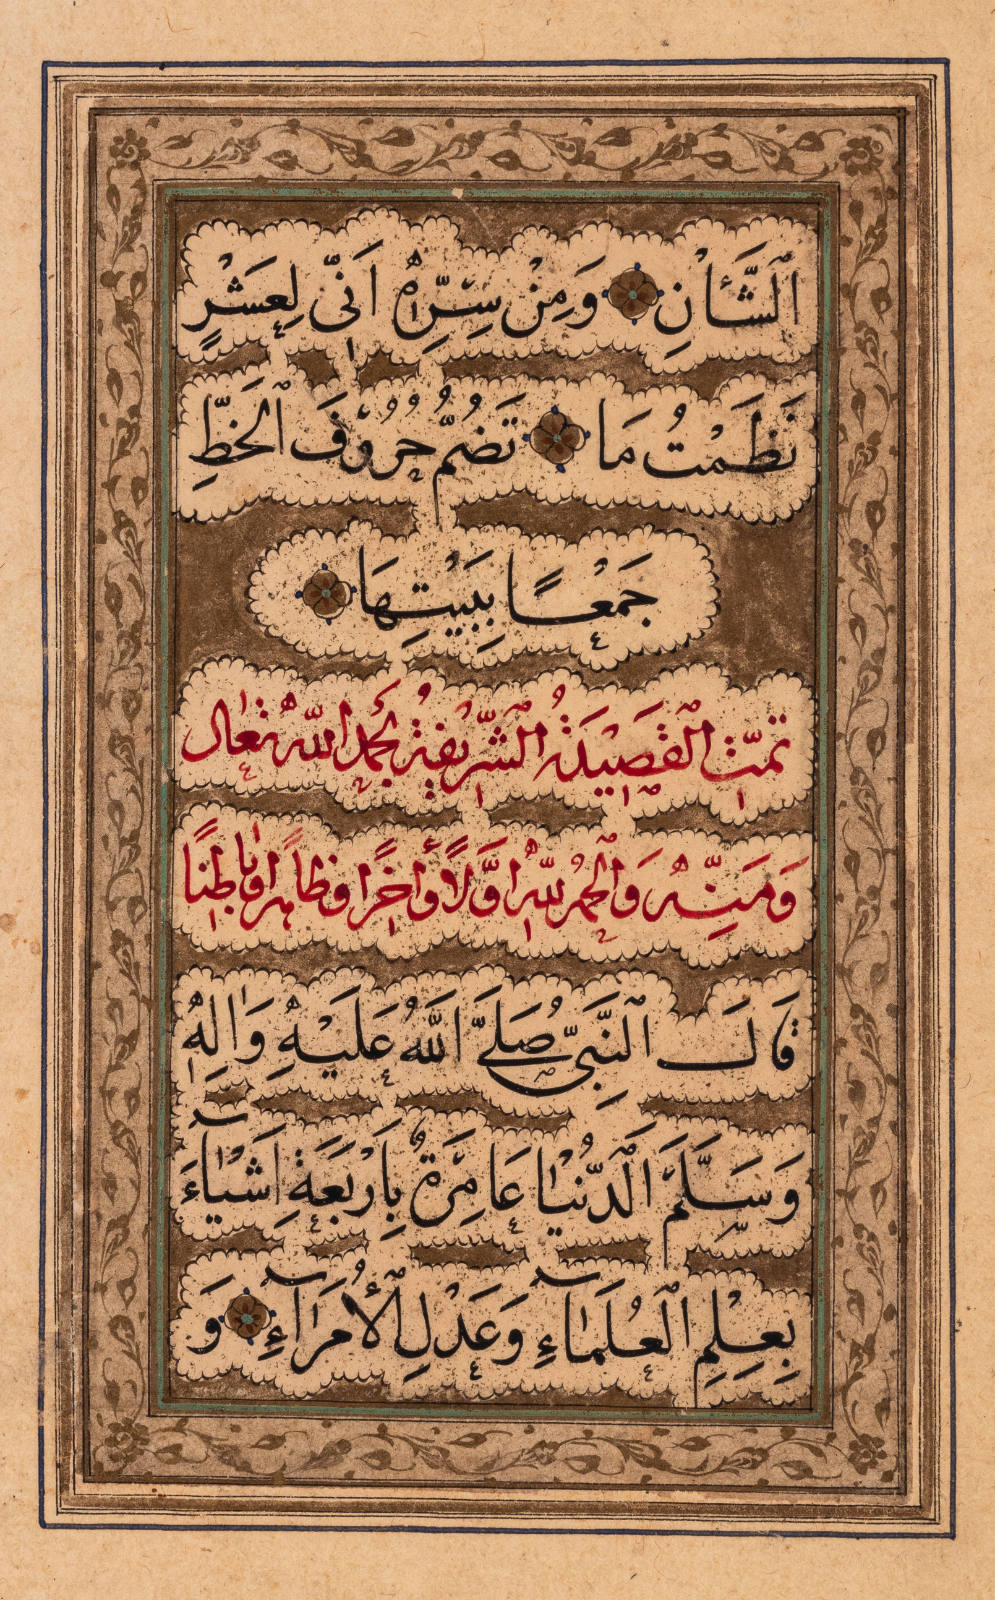 اَلشَّأْنِ وَمِنْ سِرِّهٖ اَنّٖى لِعَشْرٍ
نَظَمْتُ مَا تَضُمُّ حُرُوْفَ الْخَطِّ
جَمْعًا بِبَيْتِهَا
تمت القَصِيدَةُ الشَّرِيفَةُ بحمد اللّٰه تعالى
وَمَنِّهٖ وَالْحمد للّٰه اَوَّلًا وَاٰخِرًا وَظاهرًا وَباطِنًا
قَالَ النَّبِىُّ صَلَّى اللّٰهُ عَلَيْهِ وَاٰلِهٖ
وَسَلَّمَ الدُّنْيَا عَامِرَةٌ بِاَرْبَعَةِ اَشْيَآءَ
بِعِلْمِ الْعُلَمَآءِ وَعَدْلِ الْأُمَرَآءِ وَ